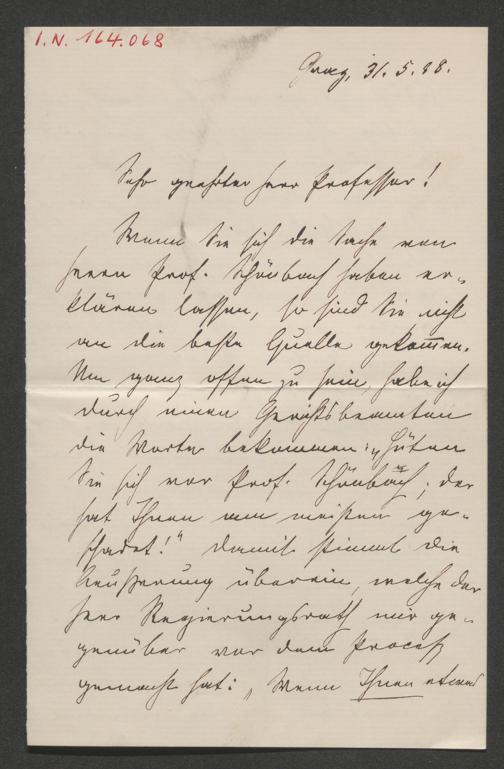 I.N. 164.068
Graz, 31. 5. 88.
Sehr geehrter Herr Professor!
Wenn Sie sich die Sache von
Herrn Prof. Schönbach haben er-
klären lassen, so sind Sie nicht
an die beste Quelle gekommen.
Um ganz offen zu sein, habe ich
durch einen Gerichtsbeamten
die Worte bekommen: „Hüten
Sie sich vor Prof. Schönbach; der
hat Ihnen am meisten ge-
schadet!" Damit stimmt die
Aeußerung überein, welche der
Herr Regierungsrath mir ge-
genüber vor dem Proceß
gemacht hat: „Wenn Ihnen etwas